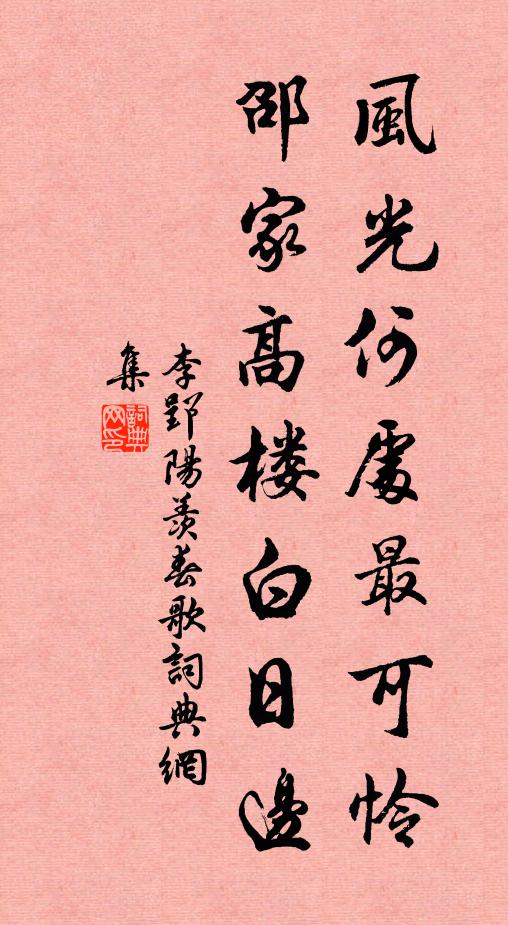 風光何處最可憐
邵家高楼白日邊
李郢陽羨春歌詞典網
集
詞典
网印